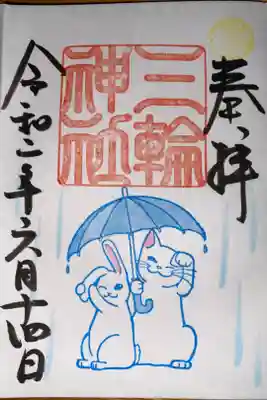 奉拝
三輪
神社
令和二年六月十四日